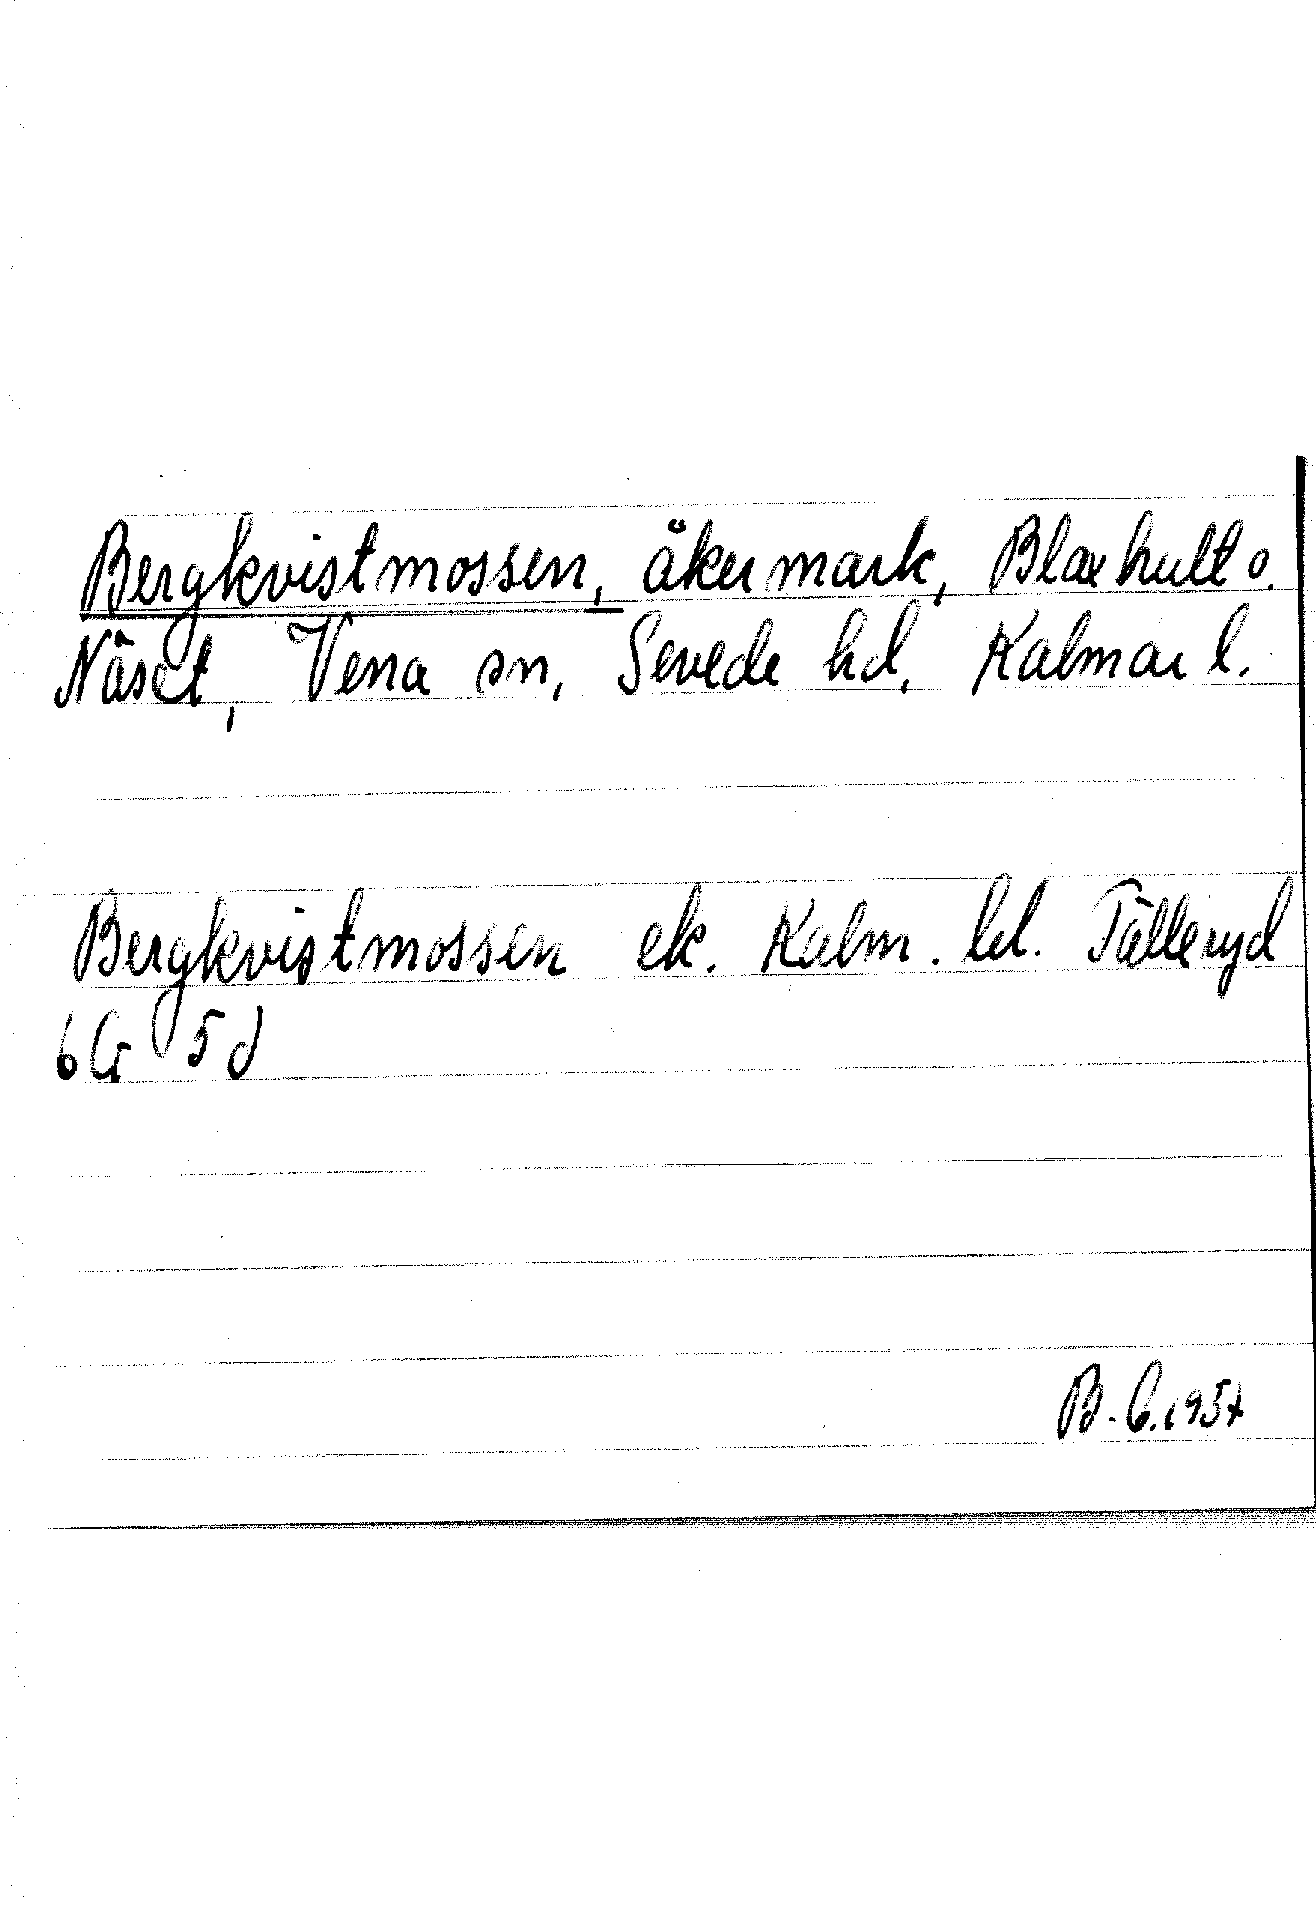 Bergkvistmossen, åkermark, Blaxhult o.
Näset, Vena sn, Sevede hd, Kalmar l.
Bergkvistmossen ek. Kalm. bl. Tälleryd
6 G 5 d
B. C. 1957